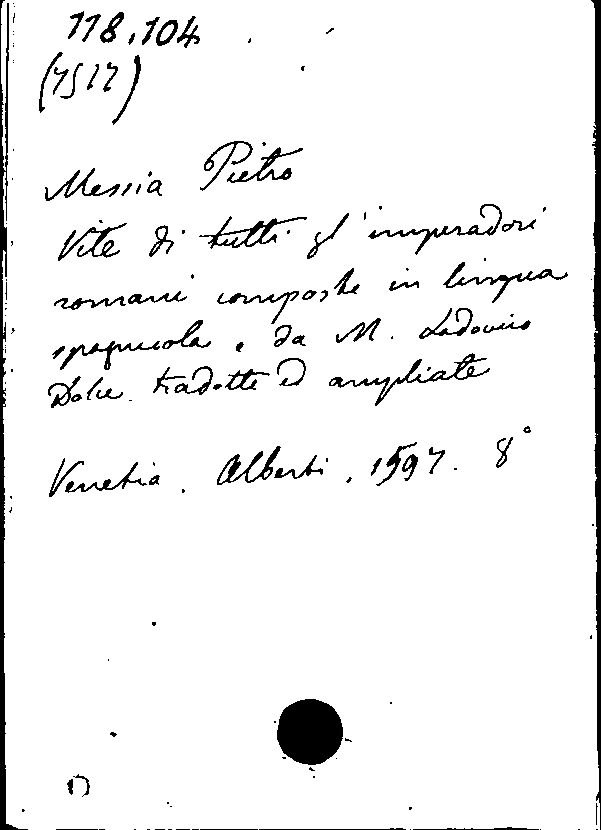 118.104
(7517)
Messia Pietro
Vite di tutti gl'imperadori
romani composte in lingua
spagnuola, e da M. Lodovico
Dolce tradotte ed ampliate
Venetia. Alberti, 1597. 8°